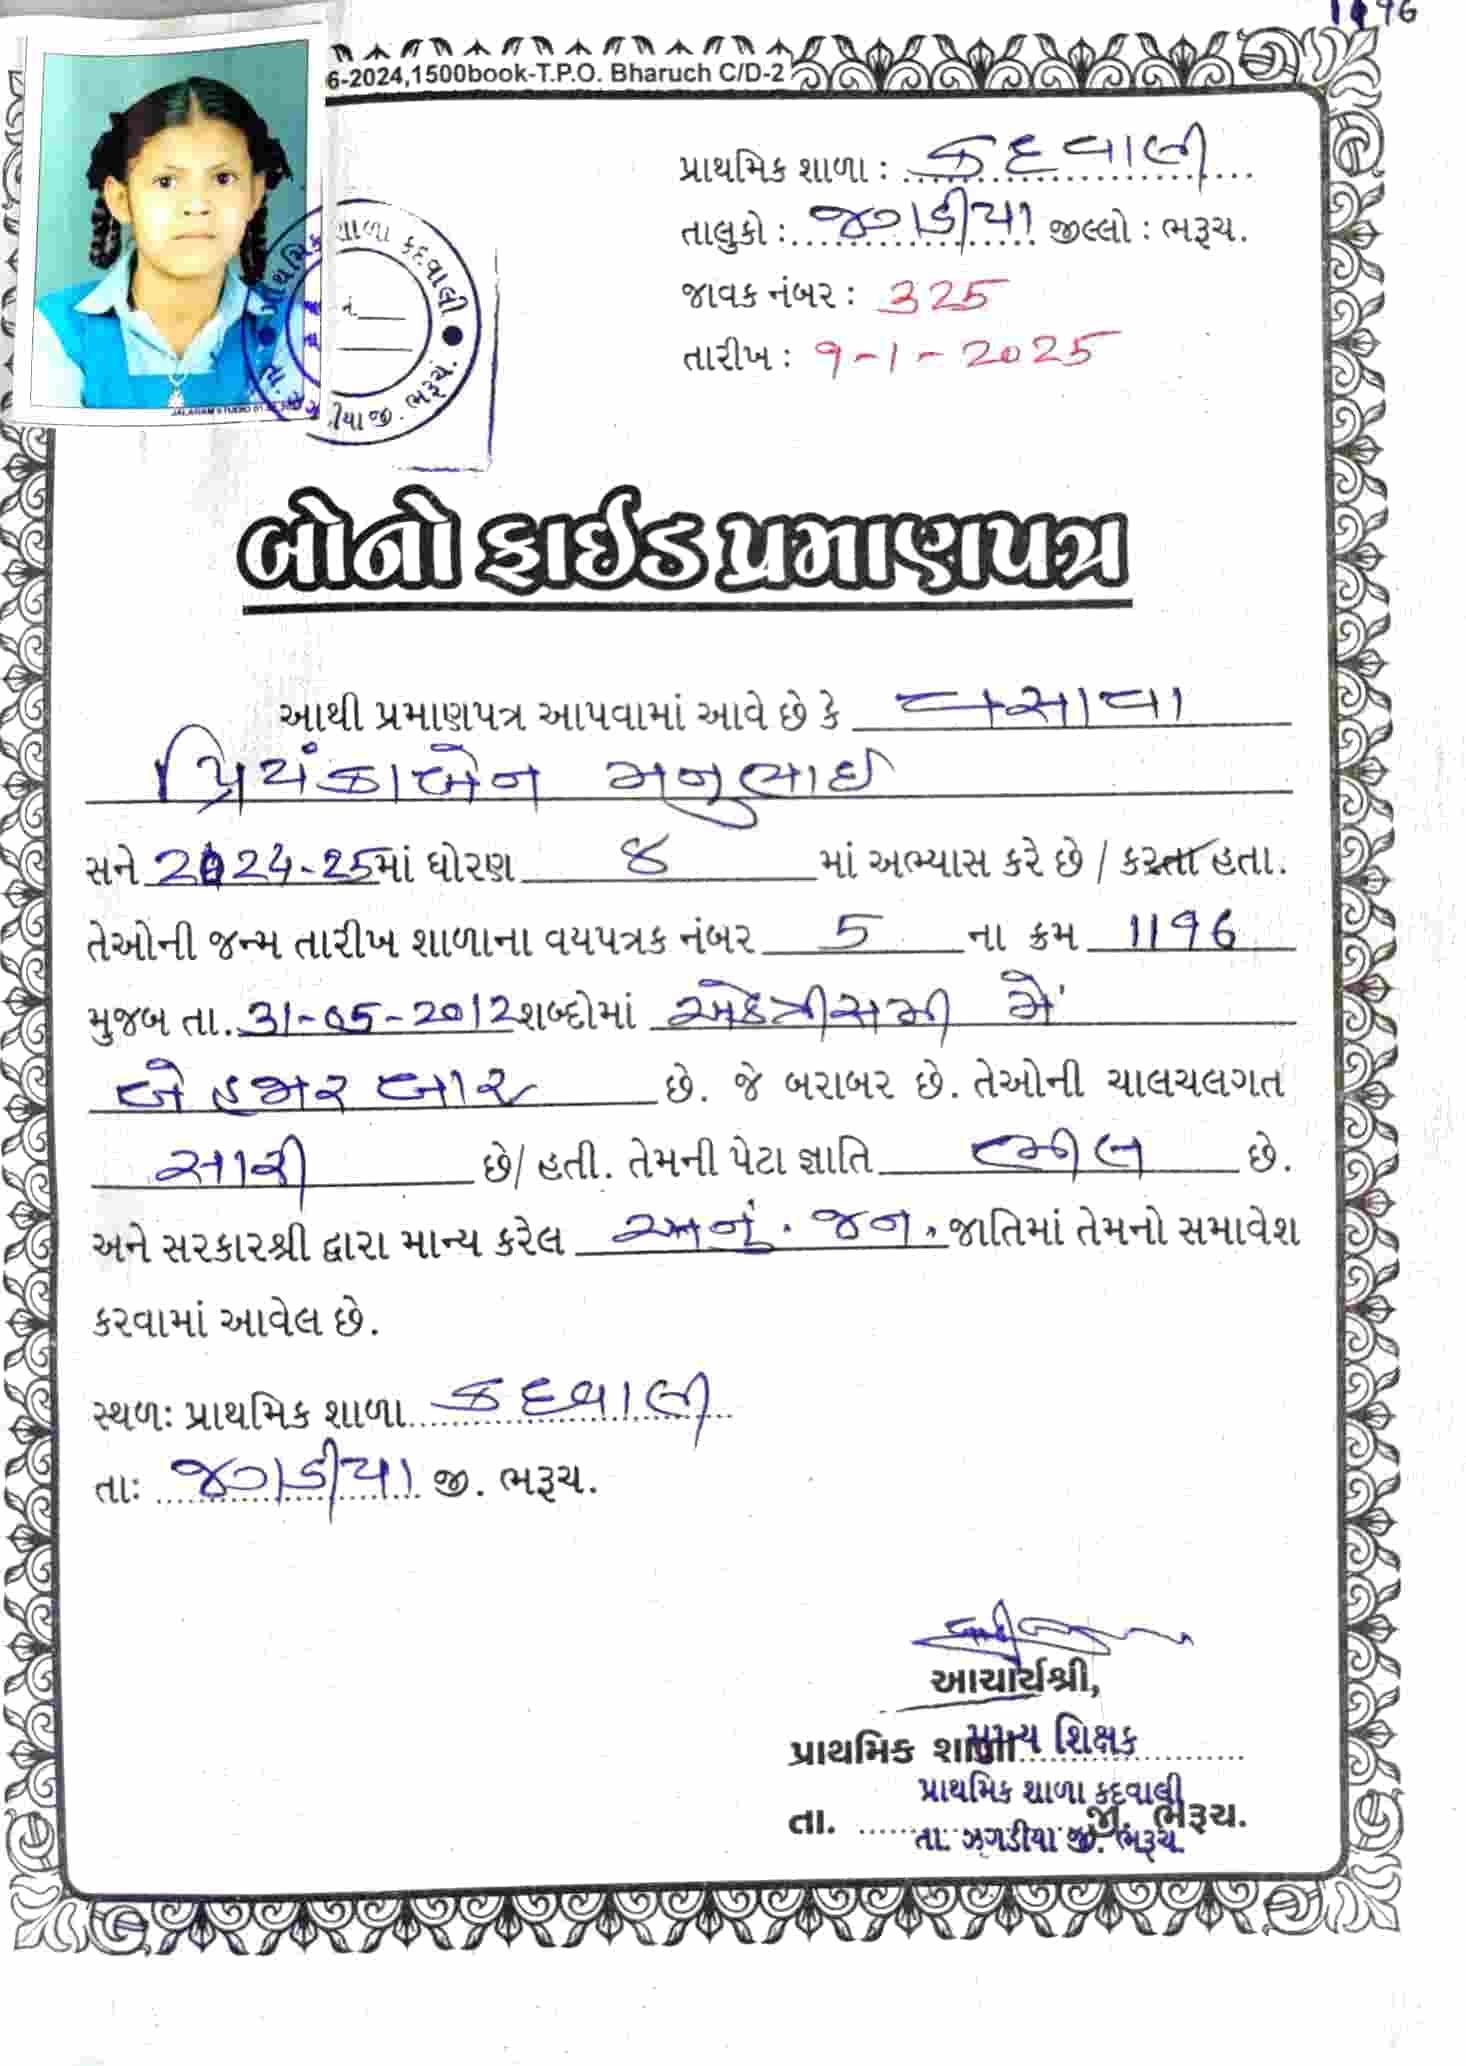 1196
6-2024,1500book-T.P.O. Bharuch C/D-2
પ્રાથમિક શાળા : કદવાલી
તાલુકો : ઝગડીયા જીલ્લો : ભરૂચ.
જાવક નંબર : 325
તારીખ : ૧-1-2025
પ્રાથમિક શાળા કદવાલી
નં.
જી. ભરૂચ.
JALARAM STUDIO
બોનો ફાઈડ પ્રમાણપત્ર
આથી પ્રમાણપત્ર આપવામાં આવે છે કે વસાવા
પ્રિયંકાબેન મનુભાઈ
સને 2024-25માં ધોરણ ૪ માં અભ્યાસ કરે છે / કરતા હતા.
તેઓની જન્મ તારીખ શાળાના વયપત્રક નંબર 5 ના ક્રમ 1196
મુજબ તા. 31-05-2012 શબ્દોમાં એકત્રીસમી મે
બે હજાર બાર છે. જે બરાબર છે. તેઓની ચાલચલગત
સારી છે/ હતી. તેમની પેટા જ્ઞાતિ ભીલ છે.
અને સરકારશ્રી દ્વારા માન્ય કરેલ અનું. જન. જાતિમાં તેમનો સમાવેશ
કરવામાં આવેલ છે.
સ્થળ: પ્રાથમિક શાળા કદવાલી
તા: ઝગડીયા જી. ભરૂચ.
આચાર્યશ્રી,
પ્રાથમિક શાળા મુખ્ય શિક્ષક
પ્રાથમિક શાળા કદવાલી
તા. જી. ભરૂચ.
તા. ઝગડીયા જી. ભરૂચ.